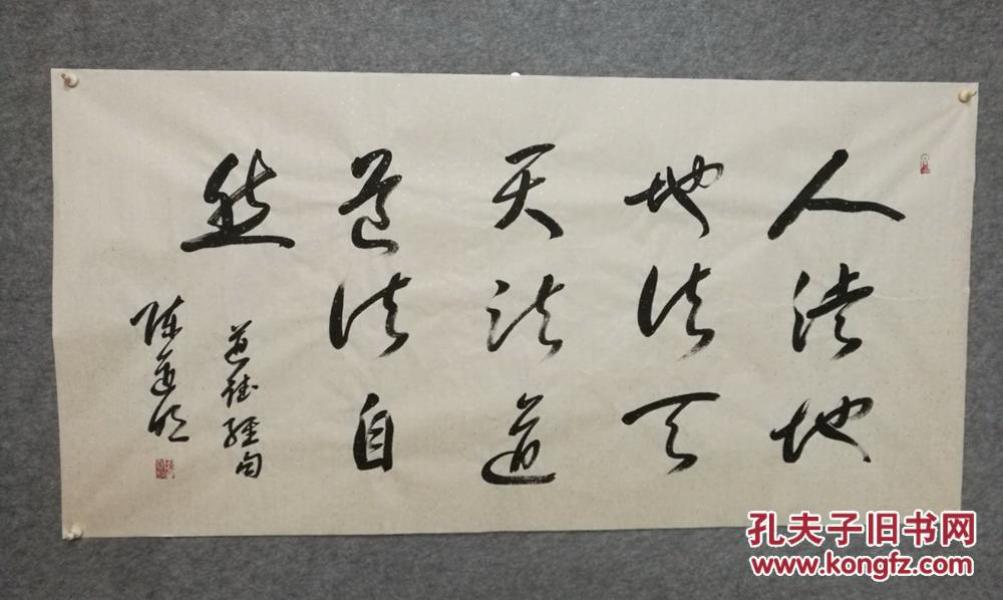 人法地
地法天
天法道
道法自
然
道德经句
陈道明
孔夫子旧书网
www.kongfz.com